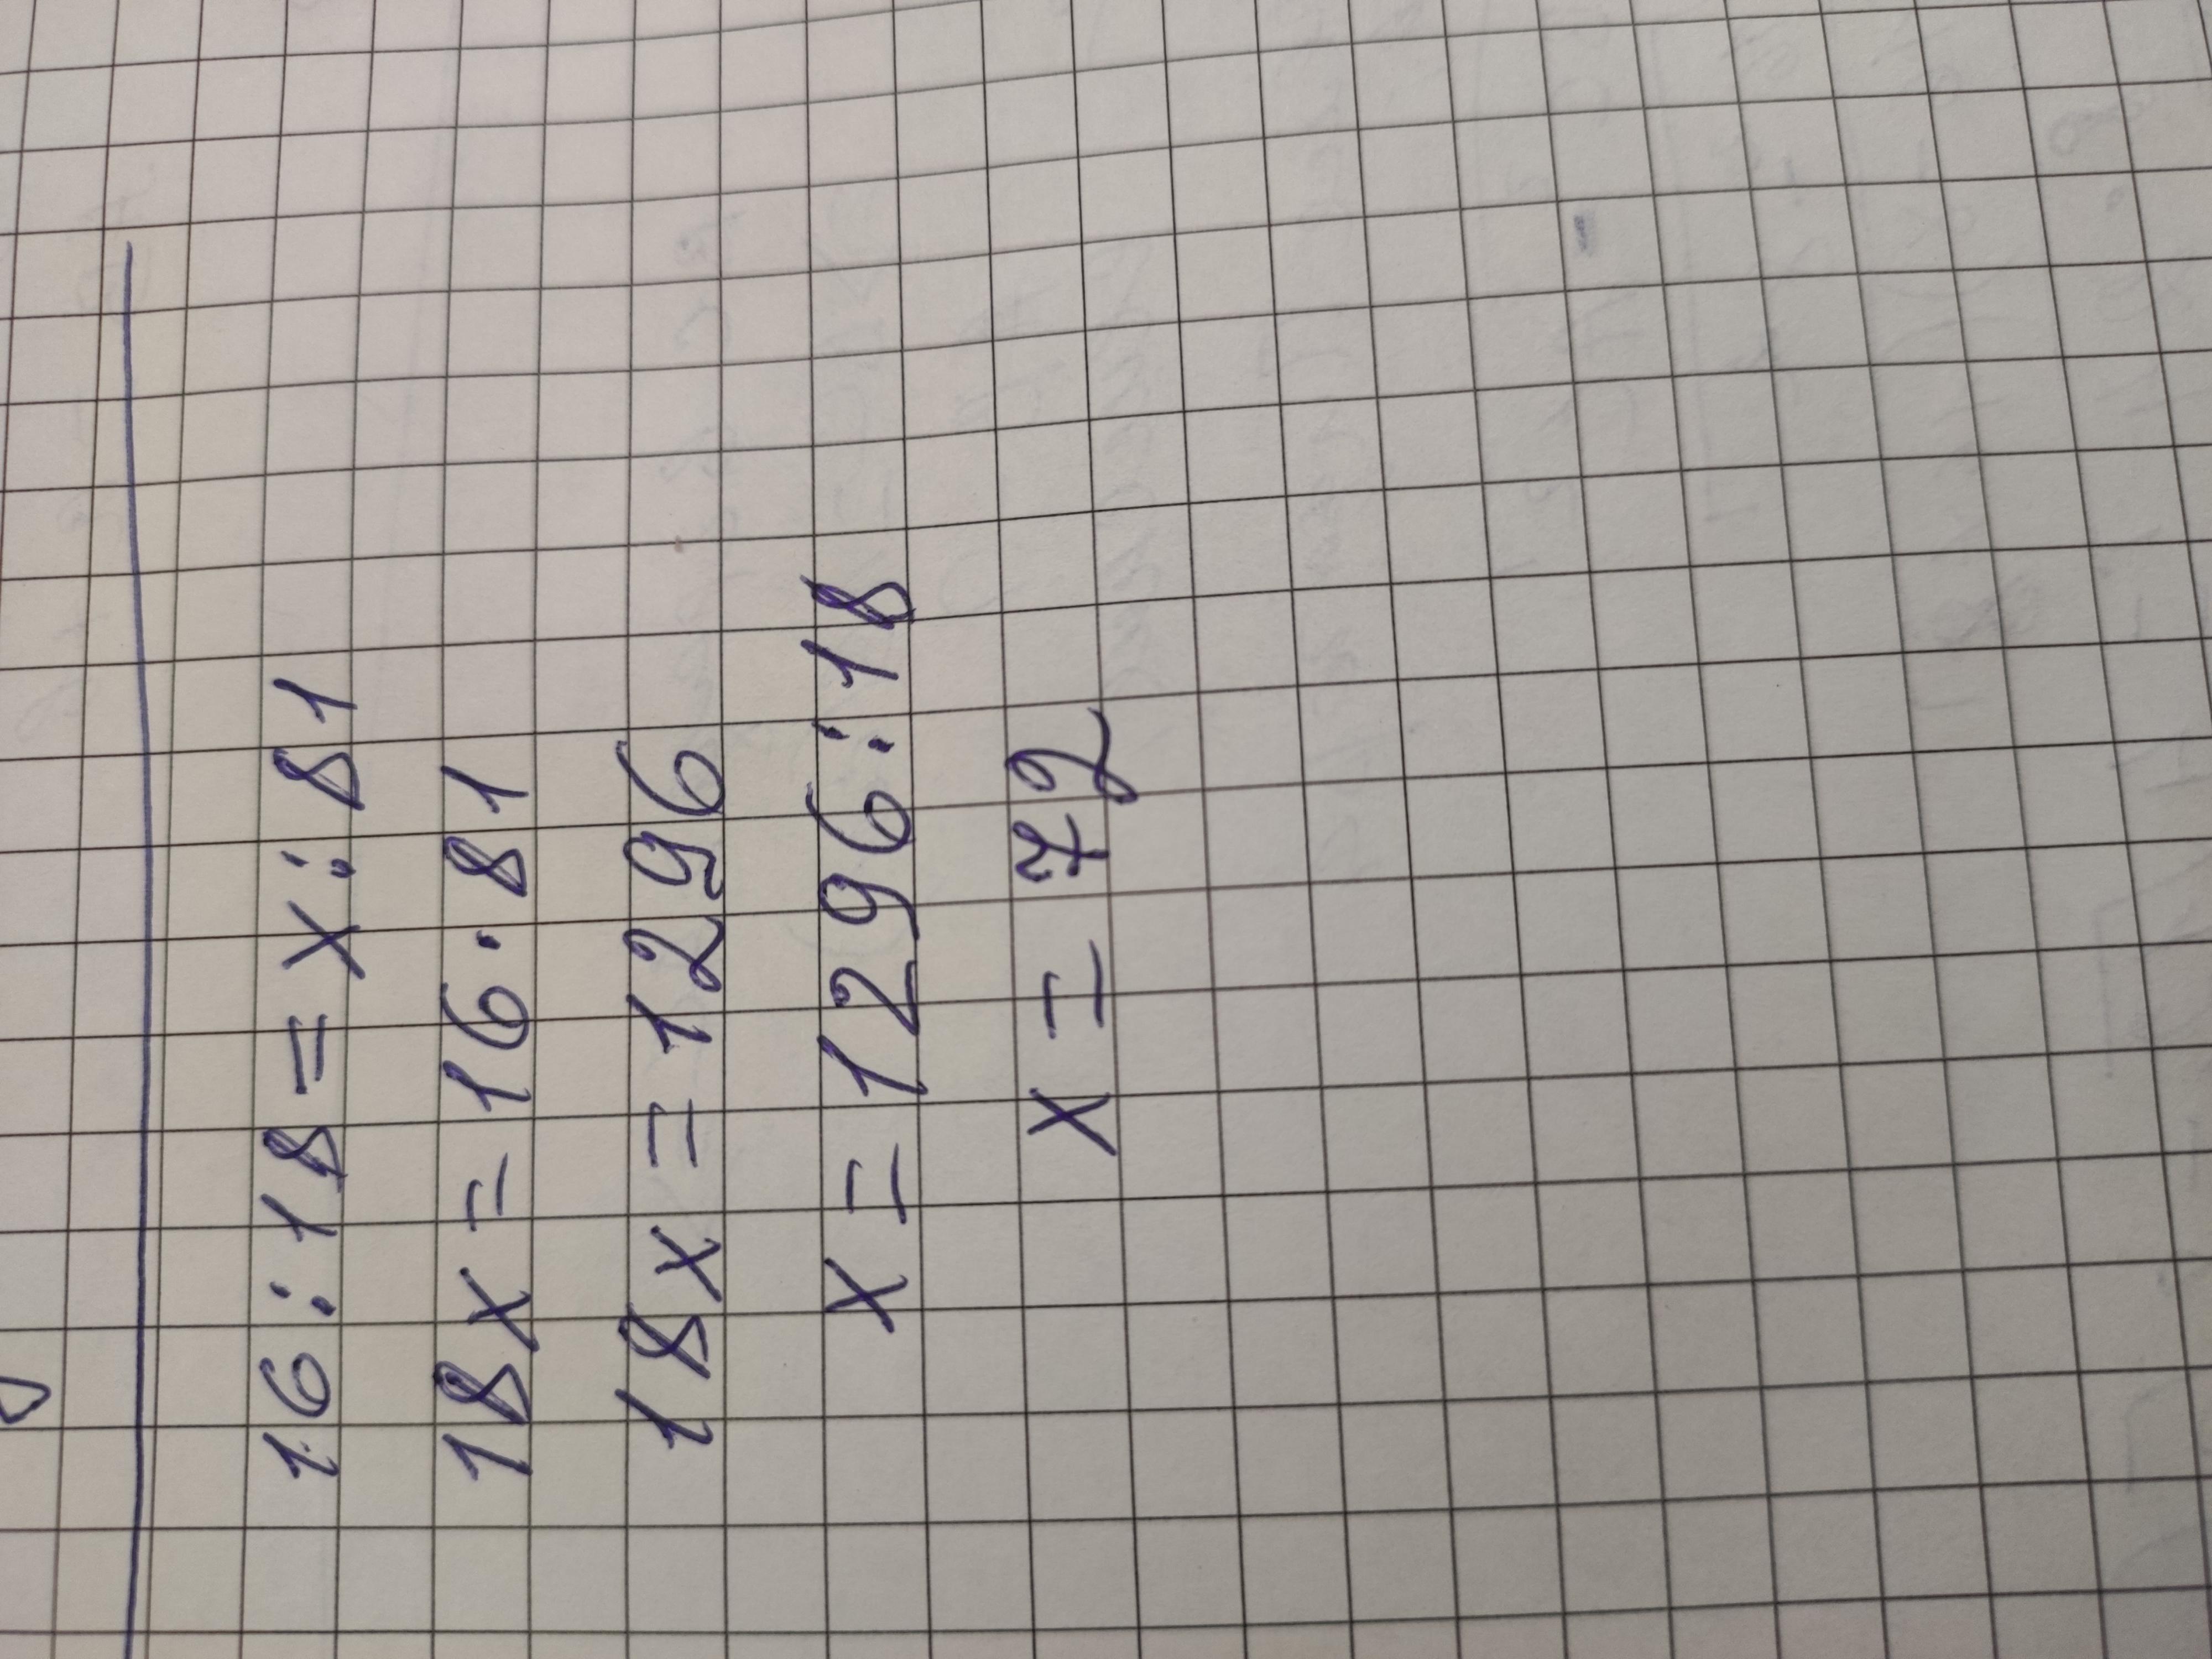 16 : 18 = x : 81
18x = 16 · 81
18x = 1296
x = 1296 : 18
x = 72